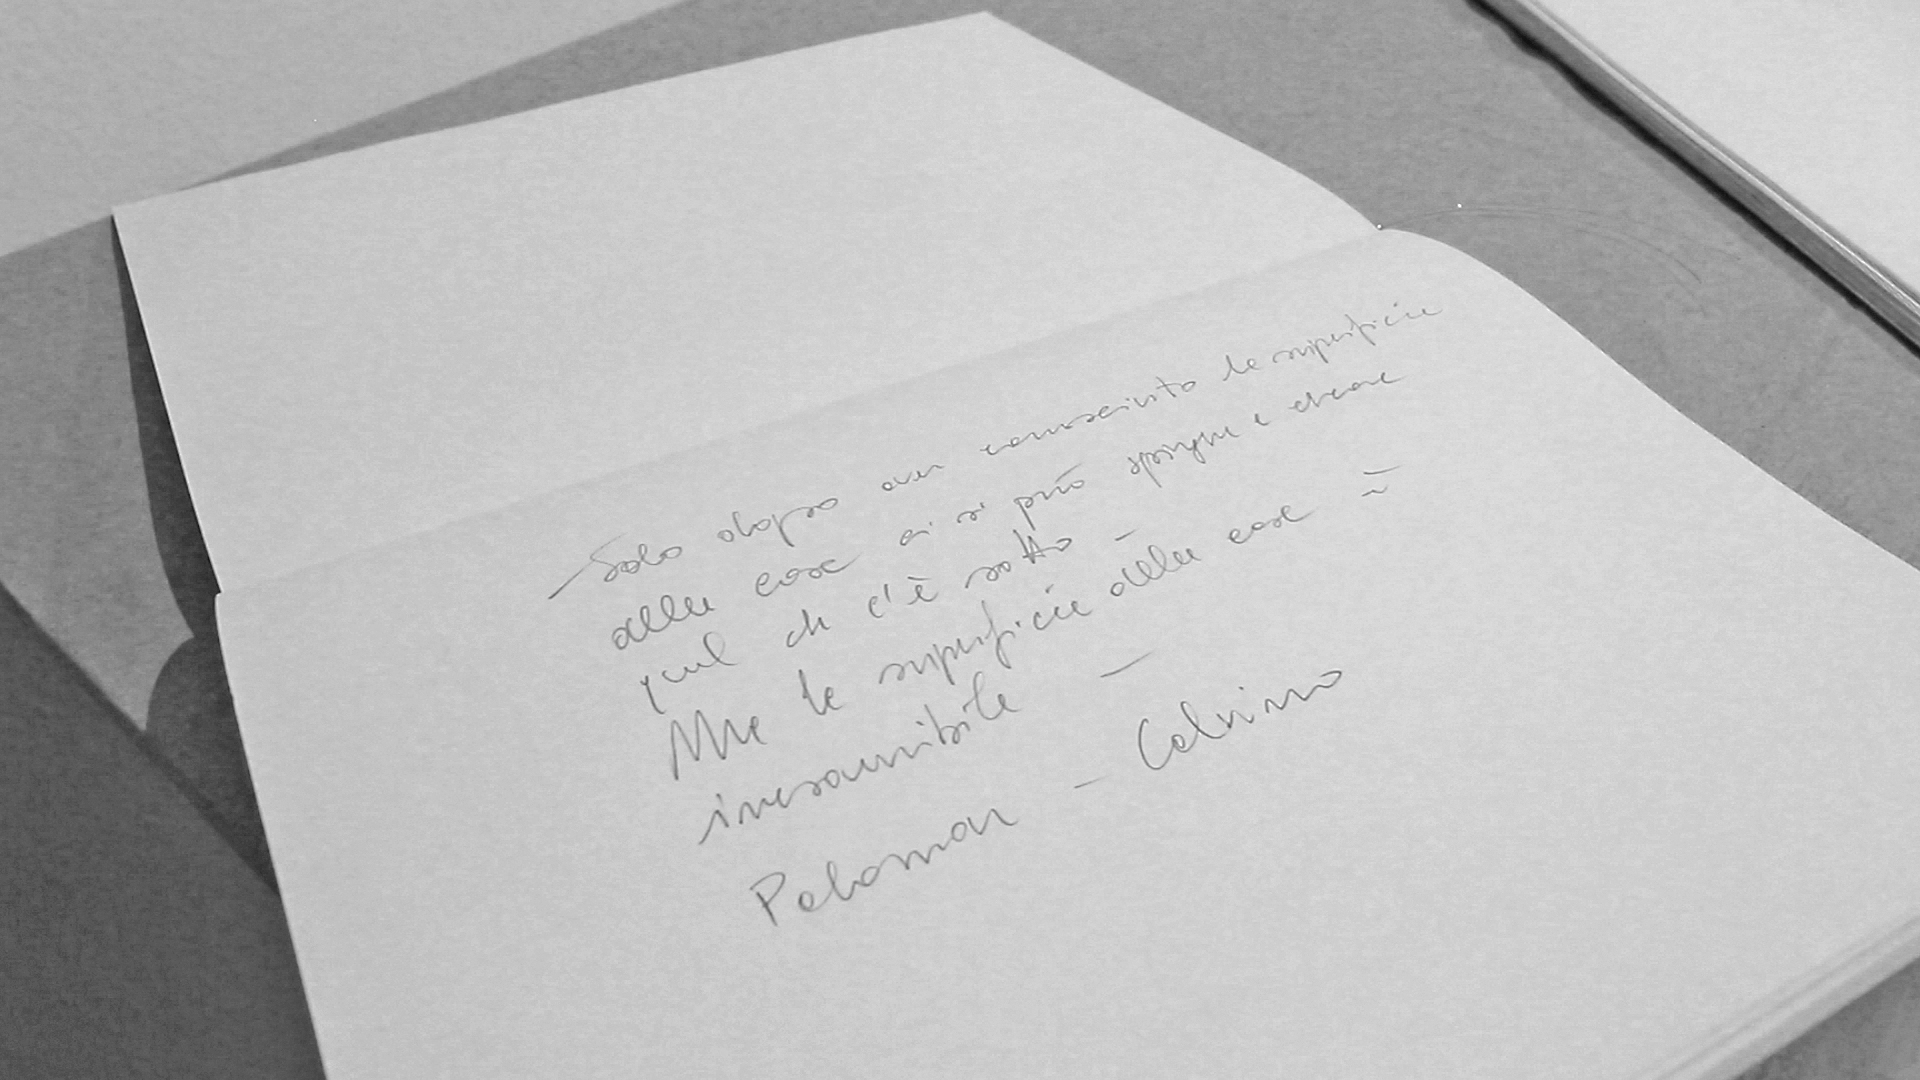 - Solo dopo aver conosciuto la superficie
delle cose ci si può spingere a cercare
quel che c'è sotto -
Ma la superficie delle cose è
inesauribile -
Palomar - Calvino